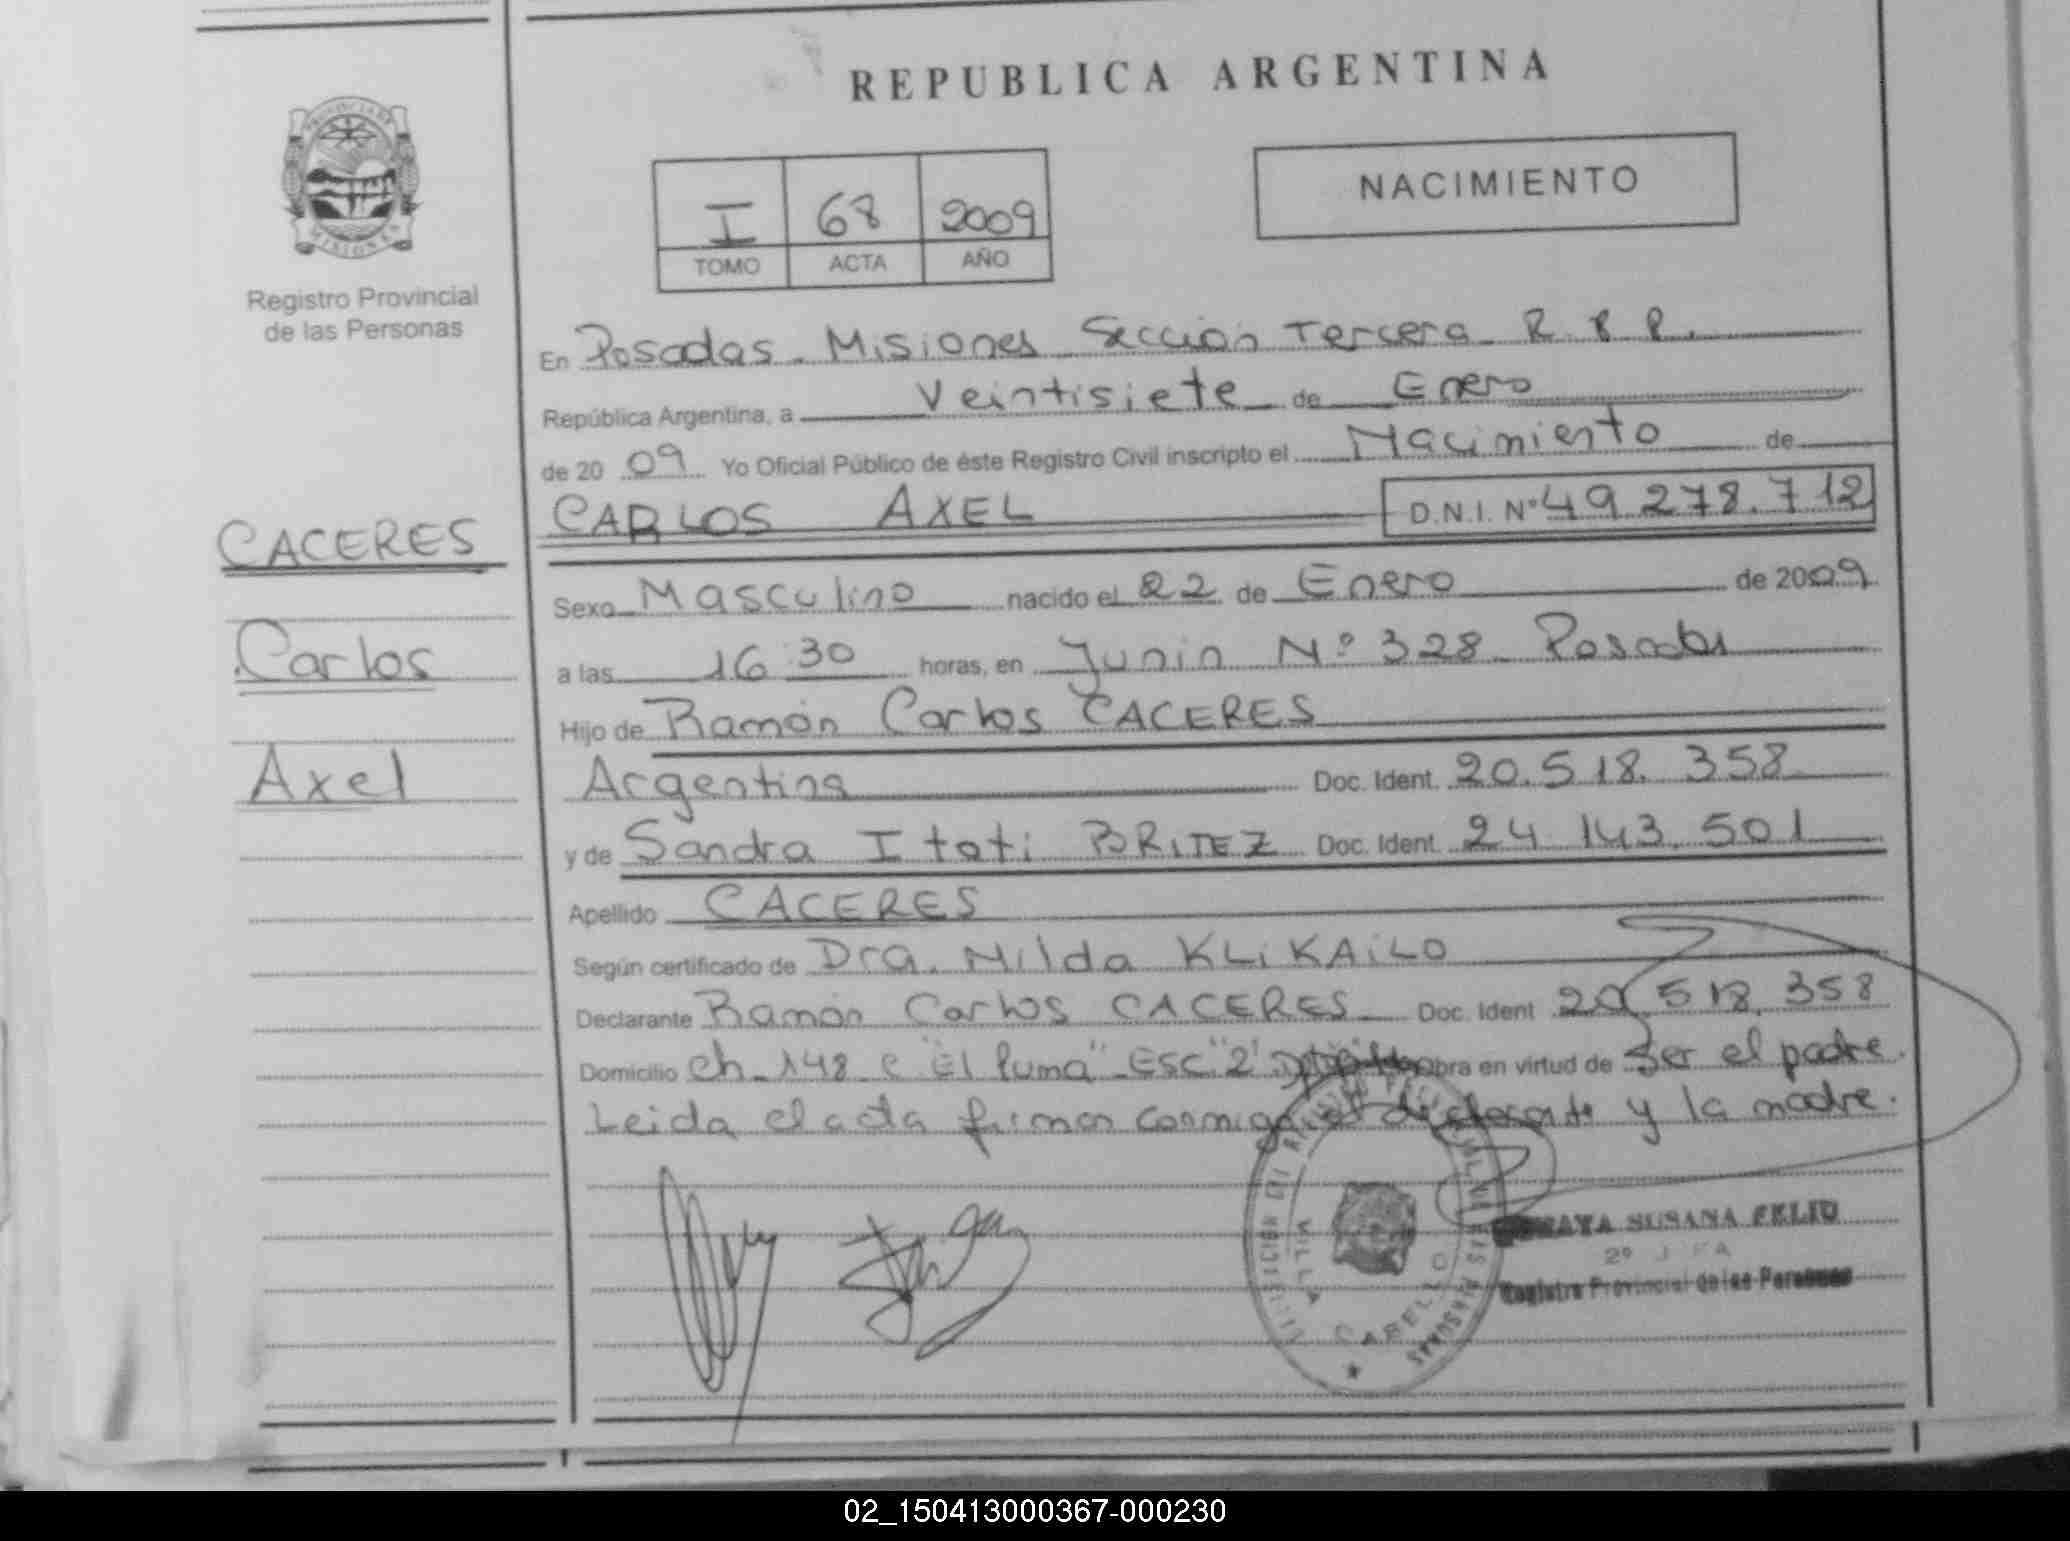 REPUBLICA ARGENTINA
PROVINCIA DE
MISIONES
Registro Provincial
de las Personas
I 68 2009
TOMO ACTA AÑO
NACIMIENTO
En Posadas. Misiones Sección Tercera R.P.P.
República Argentina, a Veintisiete de Enero
de 2009 Yo Oficial Público de éste Registro Civil inscripto el Nacimiento de
CARLOS AXEL D.N.I. Nº 49.278.712
CACERES
Carlos
Axel
Sexo Masculino nacido el 22 de Enero de 2009
a las 16:30 horas, en Junin Nº 328 Posadas
Hijo de Ramón Carlos CACERES
Argentina Doc. Ident. 20.518.358
y de Sandra Itati BRITEZ Doc. Ident. 24.143.501
Apellido CACERES
Según certificado de Dra. Nilda KLiKAiLO
Declarante Ramón Carlos CACERES Doc. Ident 20.518.358
Domicilio ch. 148 e "El Puma" Esc "2" obra en virtud de Ser el padre.
Leida el acta firman conmigo el declarante y la madre.
SUSANA FELIU
2º JEFA
Registro Provincial de las Personas
VILLA CABELLO
02_150413000367-000230